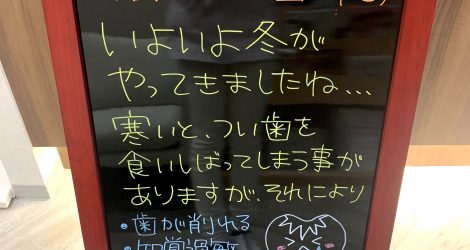 いよいよ冬が
やってきましたね…
寒いと、つい歯を
食いしばってしまう事が
ありますが、それにより
・歯が削れる
・知覚過敏